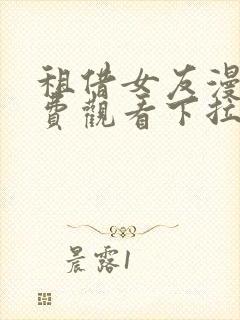 租借女友漫
費觀看下拉
晨露1